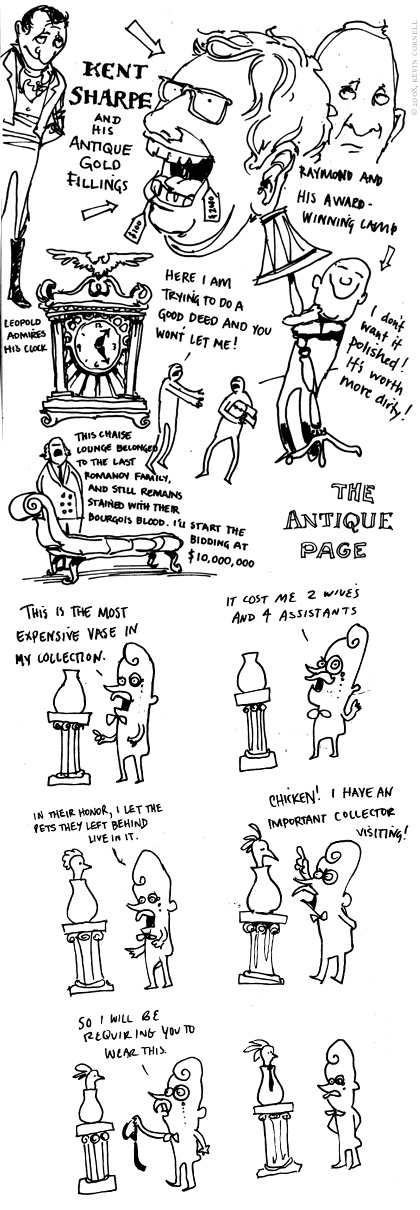 © 2008, KEVIN CORNELL
KENT
SHARPE
AND
HIS
ANTIQUE
GOLD
FILLINGS
$100
$200
RAYMOND AND
HIS AWARD-
WINNING LAMP
LEOPOLD
ADMIRES
HIS CLOCK
HERE I AM
TRYING TO DO A
GOOD DEED AND YOU
WON'T LET ME!
I don't
want it
polished!
It's worth
more dirty!
THIS CHAISE
LOUNGE BELONGED
TO THE LAST
ROMANOV FAMILY,
AND STILL REMAINS
STAINED WITH THEIR
BOURGOIS BLOOD. I'll START THE
BIDDING AT
$10,000,000
THE
ANTIQUE
PAGE
THIS IS THE MOST
EXPENSIVE VASE IN
MY COLLECTION.
IT COST ME 2 WIVES
AND 4 ASSISTANTS
IN THEIR HONOR, I LET THE
PETS THEY LEFT BEHIND
LIVE IN IT.
CHICKEN! I HAVE AN
IMPORTANT COLLECTOR
VISITING!
SO I WILL BE
REQUIRING YOU TO
WEAR THIS.